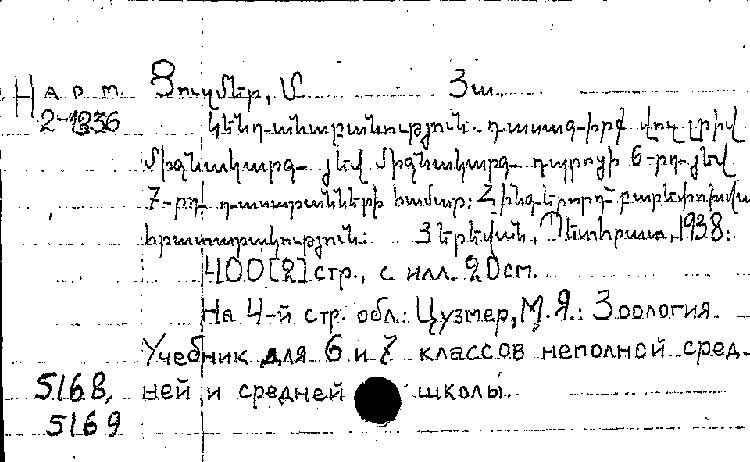 Н арт. Ցուզմեր, Մ. Յա.
2-1836 Կենդանաբանություն. դասագիրք վոչ լրիվ
միջնակարգ յեվ միջնակարգ դպրոցի 6-րդ յեվ
7-րդ դասարանների համար: Հինգերորդ բարեփոխված
հրատարակություն: Յերեվան, Պետհրատ, 1938:
400 [2] стр., с илл. 20см.
На 4-й стр. обл.: Цузмер, М. Я.: Зоология.
Учебник для 6 и 7 классов неполной сред-
5168, ней и средней школы.
5169